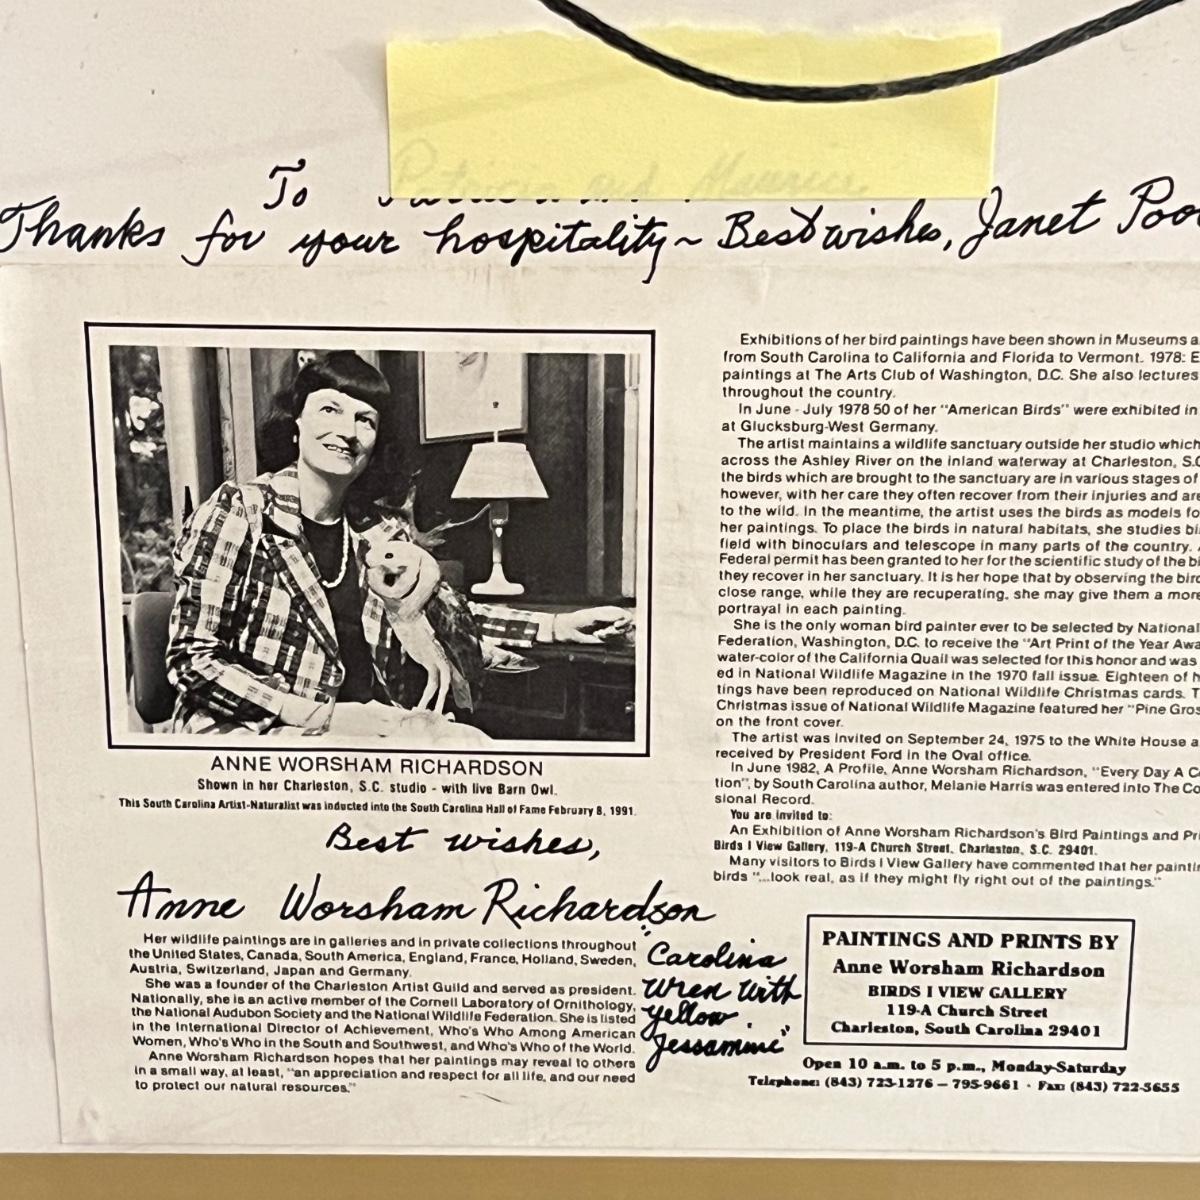 To
Thanks for your hospitality ~ Best wishes, Janet
ANNE WORSHAM RICHARDSON
Shown in her Charleston, S.C. studio - with live Barn Owl.
This South Carolina Artist-Naturalist was inducted into the South Carolina Hall of Fame February 8, 1991.
Best wishes,
Anne Worsham Richardson
Her wildlife paintings are in galleries and in private collections throughout
the United States, Canada, South America, England, France, Holland, Sweden,
Austria, Switzerland, Japan and Germany.
She was a founder of the Charleston Artist Guild and served as president.
Nationally, she is an active member of the Cornell Laboratory of Ornithology,
the National Audubon Society and the National Wildlife Federation. She is listed
in the International Director of Achievement, Who's Who Among American
Women, Who's Who in the South and Southwest, and Who's Who of the World.
Anne Worsham Richardson hopes that her paintings may reveal to others
in a small way, at least, "an appreciation and respect for all life, and our need
to protect our natural resources."
"Carolina
Wren with
Yellow
Jessamine"
Exhibitions of her bird paintings have been shown in Museums
from South Carolina to California and Florida to Vermont. 1978:
paintings at The Arts Club of Washington, D.C. She also lectures
throughout the country.
In June - July 1978 50 of her "American Birds" were exhibited in
at Glucksburg-West Germany.
The artist maintains a wildlife sanctuary outside her studio which
across the Ashley River on the inland waterway at Charleston,
the birds which are brought to the sanctuary are in various stages of
however, with her care they often recover from their injuries and
to the wild. In the meantime, the artist uses the birds as models
her paintings. To place the birds in natural habitats, she studies
field with binoculars and telescope in many parts of the country.
Federal permit has been granted to her for the scientific study of the
they recover in her sanctuary. It is her hope that by observing the
close range, while they are recuperating, she may give them a
portrayal in each painting.
She is the only woman bird painter ever to be selected by National
Federation, Washington, D.C. to receive the "Art Print of the Year
water-color of the California Quail was selected for this honor and was
ed in National Wildlife Magazine in the 1970 fall issue. Eighteen of
tings have been reproduced on National Wildlife Christmas cards.
Christmas issue of National Wildlife Magazine featured her "Pine
on the front cover.
The artist was invited on September 24, 1975 to the White House
received by President Ford in the Oval office.
In June 1982, A Profile, Anne Worsham Richardson, "Every Day A
tion", by South Carolina author, Melanie Harris was entered into The
sional Record.
You are invited to:
An Exhibition of Anne Worsham Richardson's Bird Paintings and
Birds I View Gallery, 119-A Church Street, Charleston, S.C. 29401.
Many visitors to Birds I View Gallery have commented that her
birds "...look real, as if they might fly right out of the paintings."
PAINTINGS AND PRINTS BY
Anne Worsham Richardson
BIRDS I VIEW GALLERY
119-A Church Street
Charleston, South Carolina 29401
Open 10 a.m. to 5 p.m., Monday-Saturday
Telephone: (843) 723-1276 — 795-9661 · Fax: (843) 722-5655